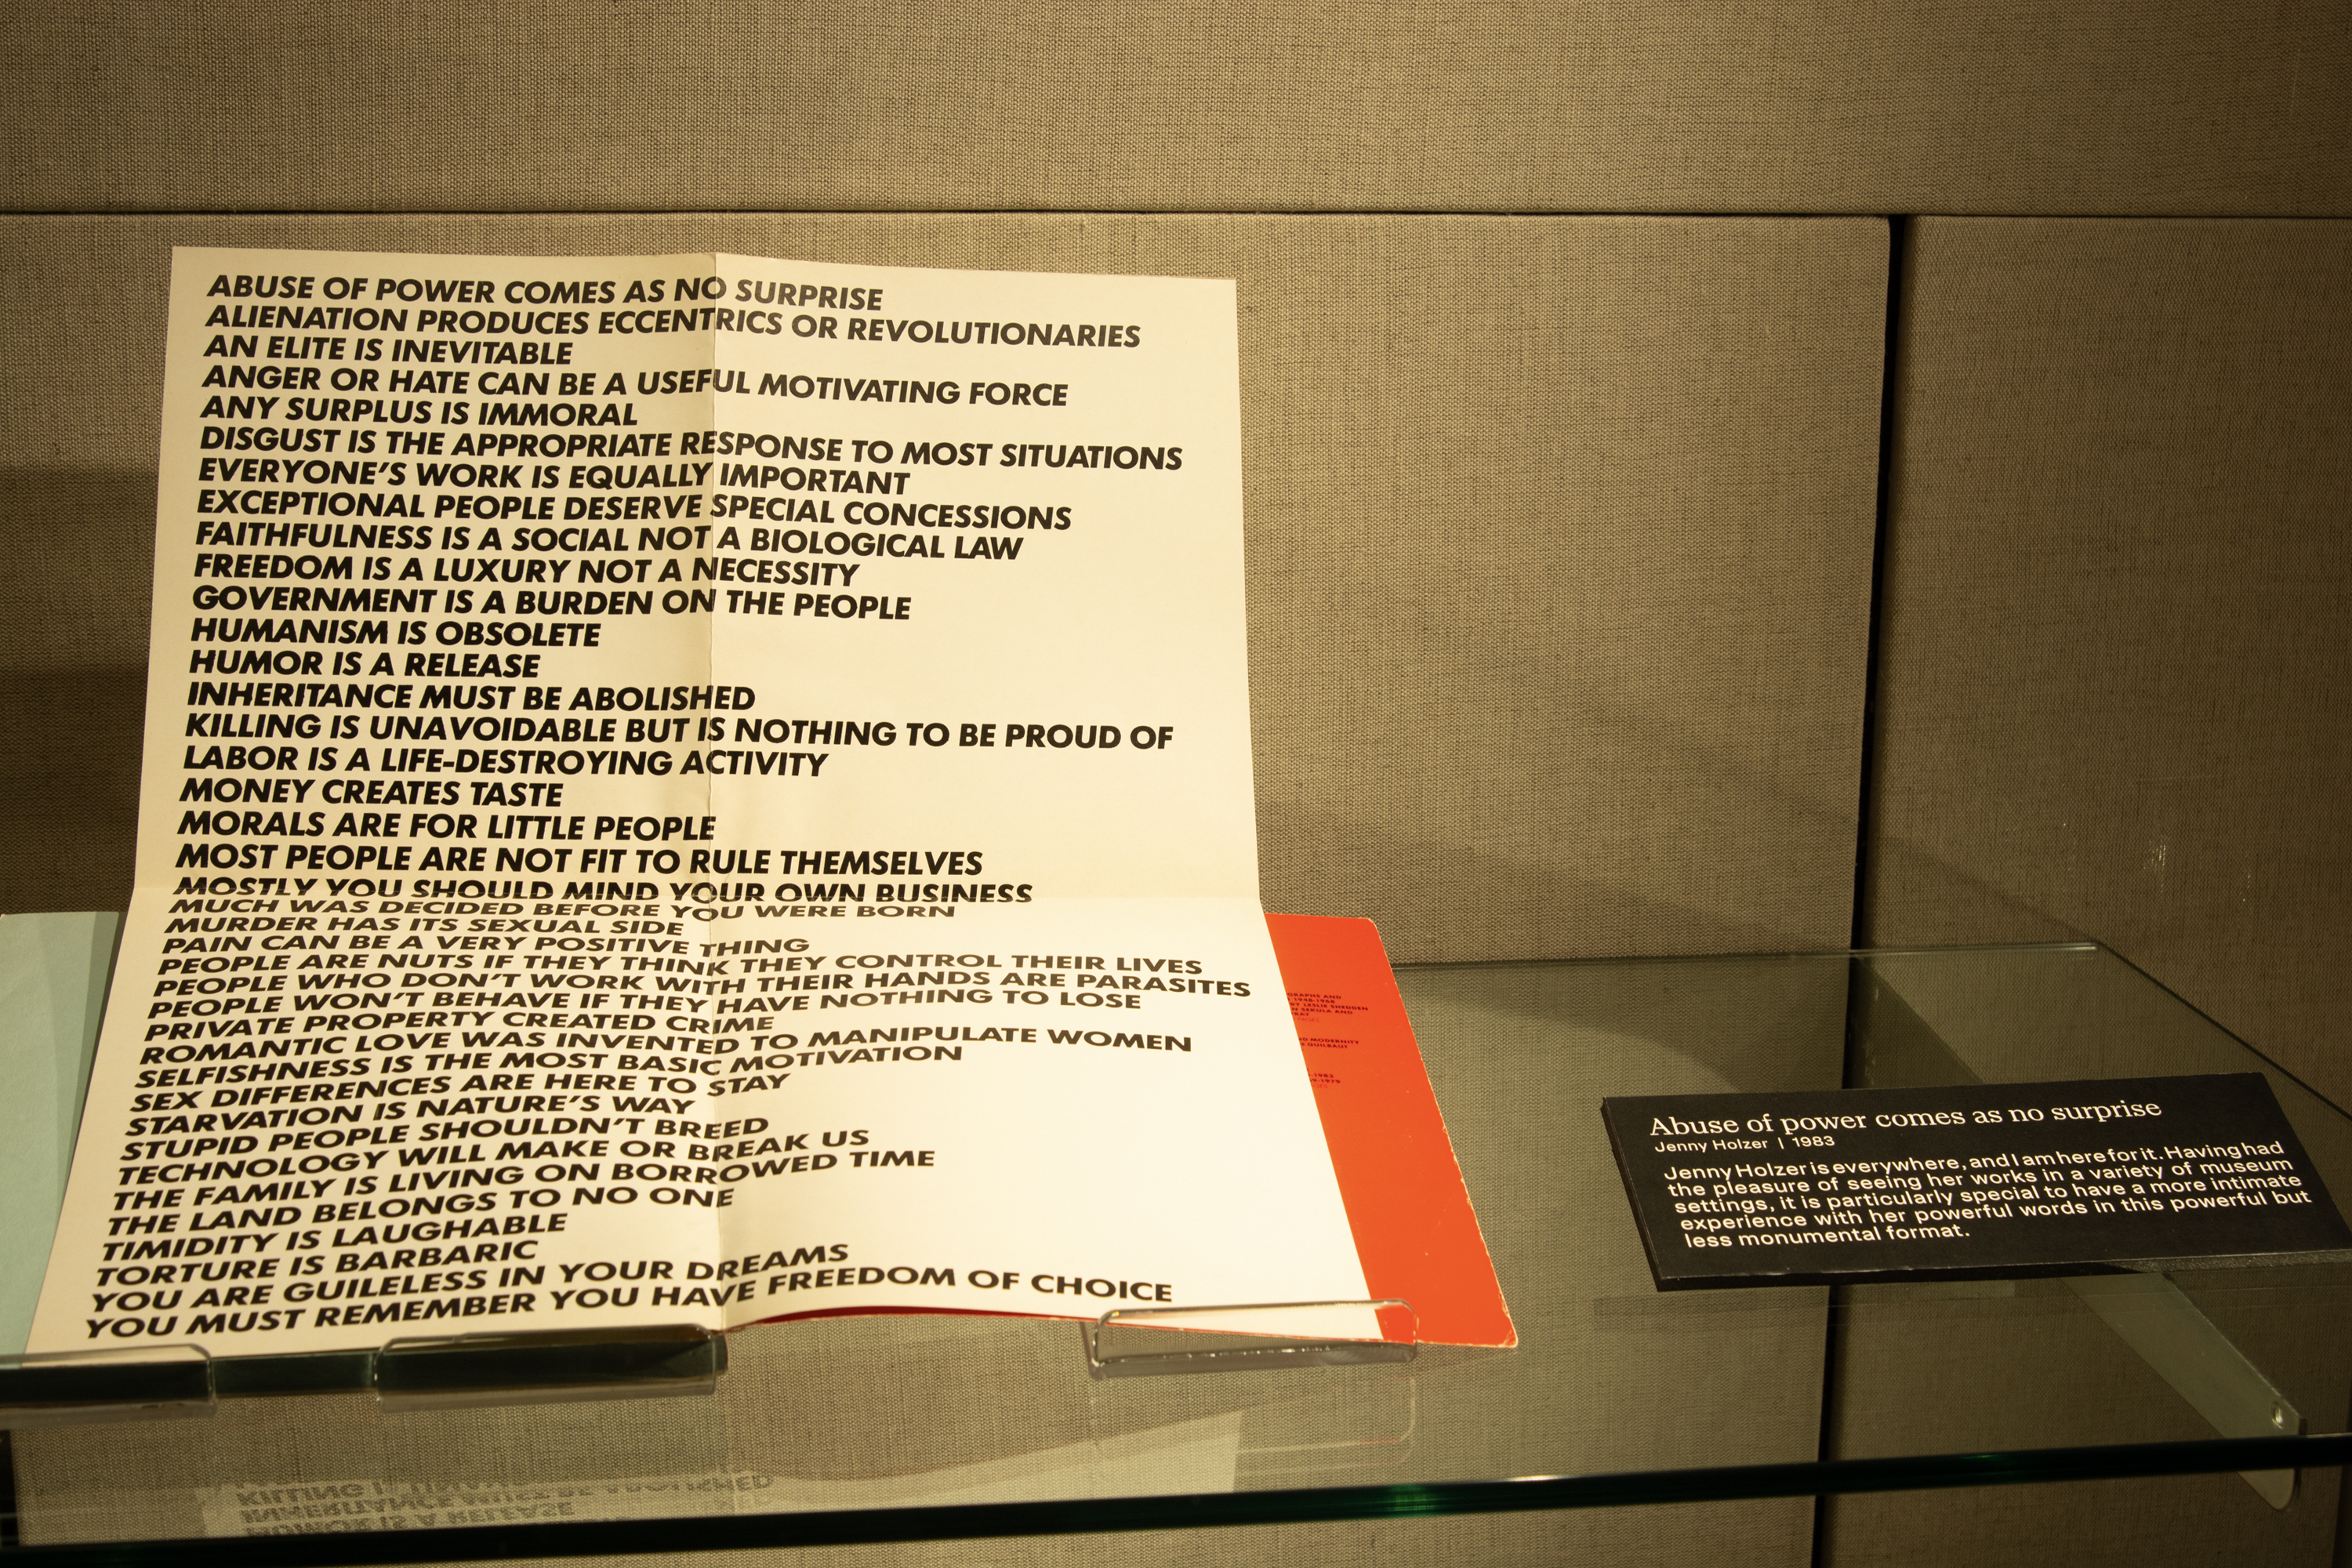 ABUSE OF POWER COMES AS NO SURPRISE
ALIENATION PRODUCES ECCENTRICS OR REVOLUTIONARIES
AN ELITE IS INEVITABLE
ANGER OR HATE CAN BE A USEFUL MOTIVATING FORCE
ANY SURPLUS IS IMMORAL
DISGUST IS THE APPROPRIATE RESPONSE TO MOST SITUATIONS
EVERYONE'S WORK IS EQUALLY IMPORTANT
EXCEPTIONAL PEOPLE DESERVE SPECIAL CONCESSIONS
FAITHFULNESS IS A SOCIAL NOT A BIOLOGICAL LAW
FREEDOM IS A LUXURY NOT A NECESSITY
GOVERNMENT IS A BURDEN ON THE PEOPLE
HUMANISM IS OBSOLETE
HUMOR IS A RELEASE
INHERITANCE MUST BE ABOLISHED
KILLING IS UNAVOIDABLE BUT IS NOTHING TO BE PROUD OF
LABOR IS A LIFE-DESTROYING ACTIVITY
MONEY CREATES TASTE
MORALS ARE FOR LITTLE PEOPLE
MOST PEOPLE ARE NOT FIT TO RULE THEMSELVES
MOSTLY YOU SHOULD MIND YOUR OWN BUSINESS
MUCH WAS DECIDED BEFORE YOU WERE BORN
MURDER HAS ITS SEXUAL SIDE
PAIN CAN BE A VERY POSITIVE THING
PEOPLE ARE NUTS IF THEY THINK THEY CONTROL THEIR LIVES
PEOPLE WHO DON'T WORK WITH THEIR HANDS ARE PARASITES
PEOPLE WON'T BEHAVE IF THEY HAVE NOTHING TO LOSE
PRIVATE PROPERTY CREATED CRIME
ROMANTIC LOVE WAS INVENTED TO MANIPULATE WOMEN
SELFISHNESS IS THE MOST BASIC MOTIVATION
SEX DIFFERENCES ARE HERE TO STAY
STARVATION IS NATURE'S WAY
STUPID PEOPLE SHOULDN'T BREED
TECHNOLOGY WILL MAKE OR BREAK US
THE FAMILY IS LIVING ON BORROWED TIME
THE LAND BELONGS TO NO ONE
TIMIDITY IS LAUGHABLE
TORTURE IS BARBARIC
YOU ARE GUILELESS IN YOUR DREAMS
YOU MUST REMEMBER YOU HAVE FREEDOM OF CHOICE
Abuse of power comes as no surprise
Jenny Holzer | 1983
Jenny Holzer is everywhere, and I am here for it. Having had
the pleasure of seeing her works in a variety of museum
settings, it is particularly special to have a more intimate
experience with her powerful words in this powerful but
less monumental format.